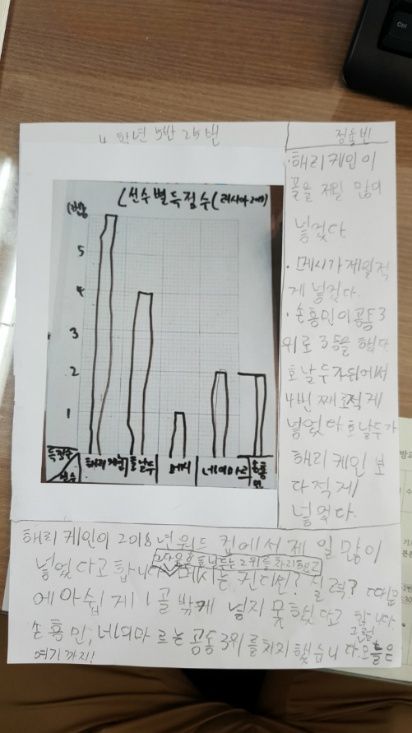 4 학년 5반 25번
정솔빈
선수별 득점수(러시아 2018)
(점)
5
4
3
2
1
득점수
선수
해리 케인
호날두
메시
네이마르
손흥민
·해리케인이
골을 제일 많이
넣었다
·메시가 제일 적
게 넣었다.
·손흥민이 공동3
위로 3등을 했다
호날두가 뒤에서
4번째로 적게
넣었다 호날두가
해리 케인 보
다 적게
넣었다.
해리 케인이 2018년 월드 컵에서 제일 많이
넣었다고 합니다 호날두는 2위를 차지했고
메시는 컨디션? 실력? 때문
에 아쉽게 1골 밖에 넣지 못했다고 합니다 그럼
손흥민, 네이마르는 공동 3위를 차지 했습니다 오늘은
여기까지!